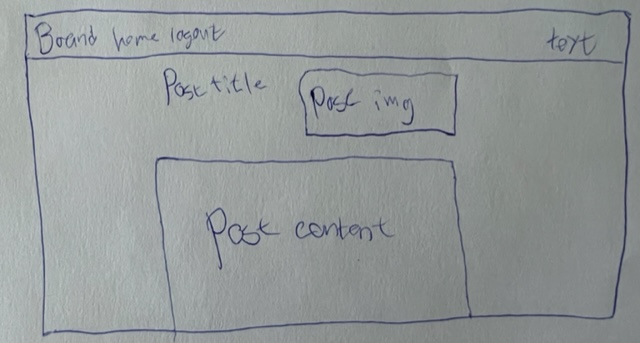 Board home logout text
Post title
Post img
Post content